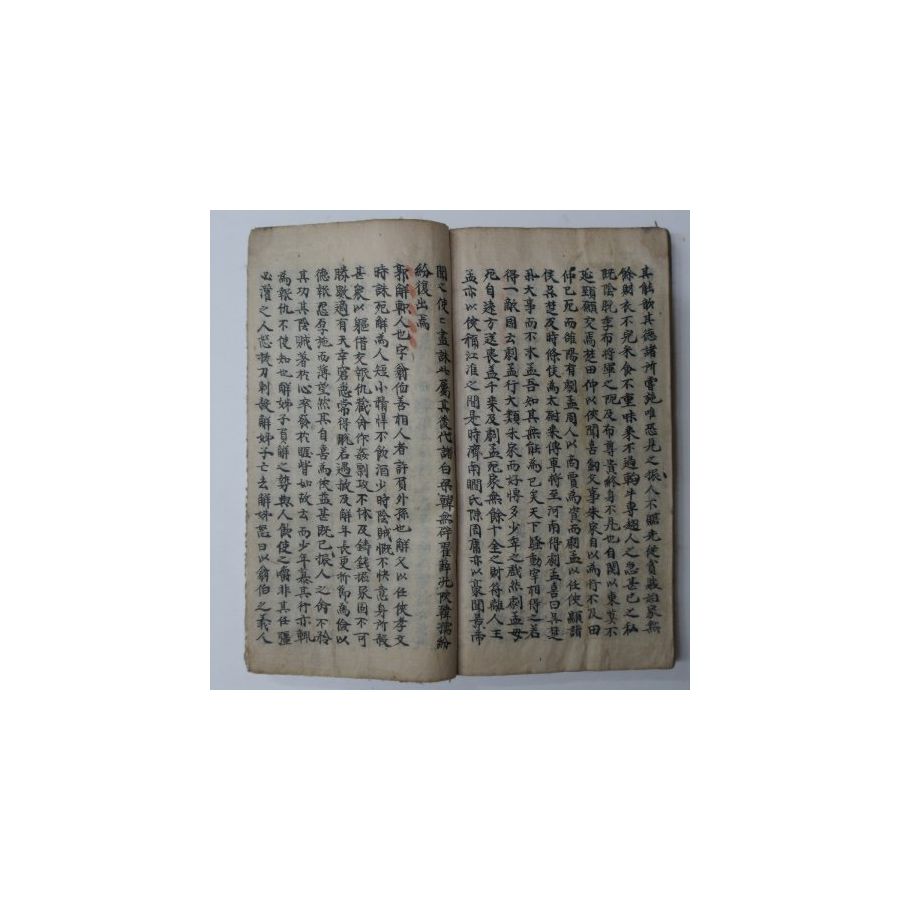 其能歆其德諸所嘗施唯恐見之振人不贍先從貧賤始家無
餘財衣不完采食不重味乘不過軥牛專趨人之急甚己之私
既陰脫季布將軍之阨及布尊貴終身不見也自関以東莫不
延頸願交焉楚田仲以俠聞喜劍父事朱家自以為行不及田
仲已死而雒陽有劇孟周人以商賈為資而劇孟以任俠顯諸
侯吳楚反時條侯為太尉乘傳車將至河南得劇孟喜曰吳楚
舉大事而不求孟吾知其無能為已矣天下騷動宰相得之若
得一敵國云劇孟行大類朱家而好博多少年之戲然劇孟母
死自遠方送喪蓋千乘及劇孟死家無餘十金之財符離人王
孟亦以俠稱江淮之間是時濟南瞷氏陳周庸亦以豪聞景帝
聞之使使盡誅此屬其後代諸白梁韓無辟翟薛兄陜韓孺紛
紛復出焉
郭解軹人也字翁伯善相人者許負外孫也解父以任俠孝文
時誅死解為人短小精悍不飲酒少時陰賊慨不快意身所殺
甚衆以軀借交報仇藏命作姦剽攻不休及鑄錢掘冢固不可
勝數適有天幸窘急常得脫若遇赦及解年長更折節為儉以
德報怨厚施而薄望然其自喜為俠益甚既已振人之命不矜
其功其陰賊著於心卒發於睚眥如故云而少年慕其行亦輒
為報仇不使知也解姊子負解之勢與人飲使之嚼非其任彊
必灌之人怒拔刀刺殺解姊子亡去解姊怒曰以翁伯之義人